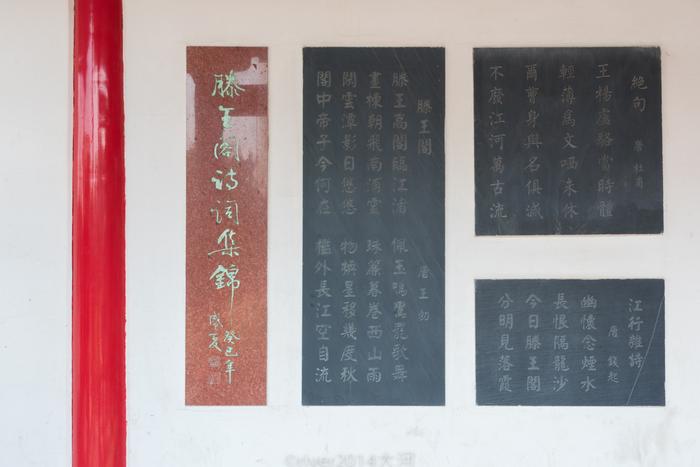 絶句
唐 杜甫
王楊盧駱當時體
輕薄為文哂未休
爾曹身與名俱滅
不廢江河萬古流
江行雜詩
唐 錢起
幽懷念煙水
長恨隔龍沙
今日滕王閣
分明見落霞
滕王閣
唐 王勃
滕王高閣臨江渚 佩玉鳴鸞罷歌舞
畫棟朝飛南浦雲 珠簾暮卷西山雨
閑雲潭影日悠悠 物換星移幾度秋
閣中帝子今何在 檻外長江空自流
滕王閣詩詞集錦
癸巳年
盛夏